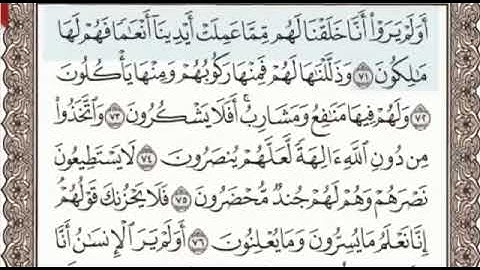 أَوَلَمْ يَرَوْا۟ أَنَّا خَلَقْنَا لَهُم مِّمَّا عَمِلَتْ أَيْدِينَآ أَنْعَـٰمًا فَهُمْ لَهَا
مَـٰلِكُونَ ٧١ وَذَلَّلْنَـٰهَا لَهُمْ فَمِنْهَا رَكُوبُهُمْ وَمِنْهَا يَأْكُلُونَ
٧٢ وَلَهُمْ فِيهَا مَنَـٰفِعُ وَمَشَارِبُ ۖ أَفَلَا يَشْكُرُونَ ٧٣ وَٱتَّخَذُوا۟
مِن دُونِ ٱللَّهِ ءَالِهَةً لَّعَلَّهُمْ يُنصَرُونَ ٧٤ لَا يَسْتَطِيعُونَ
نَصْرَهُمْ وَهُمْ لَهُمْ جُندٌ مُّحْضَرُونَ ٧٥ فَلَا يَحْزُنكَ قَوْلُهُمْ
إِنَّا نَعْلَمُ مَا يُسِرُّونَ وَمَا يُعْلِنُونَ ٧٦ أَوَلَمْ يَرَ ٱلْإِنسَـٰنُ أَنَّا